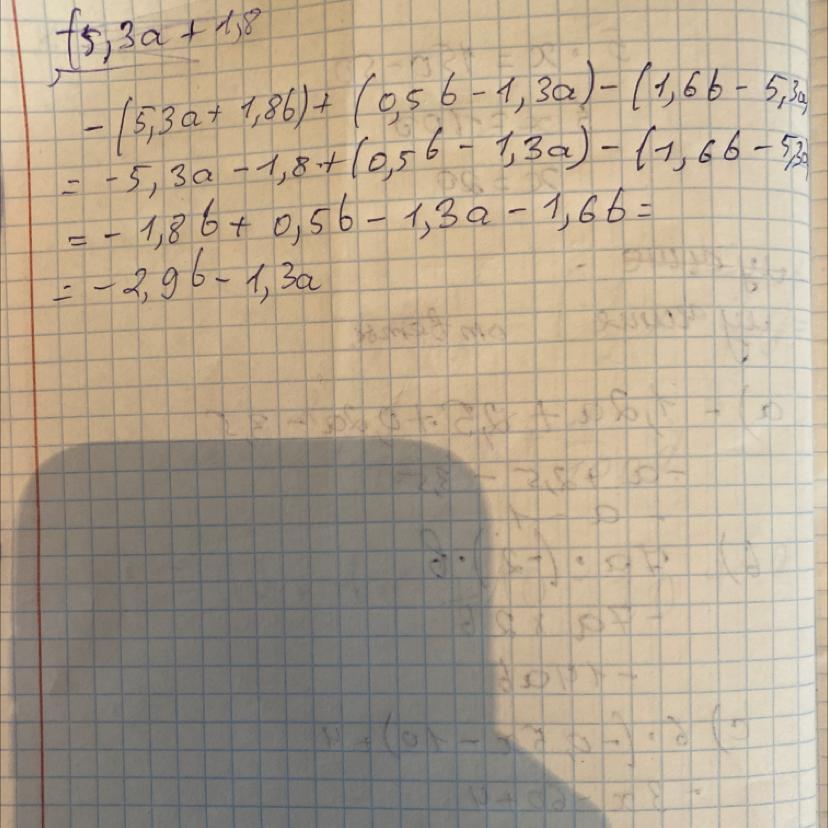 (5,3a + 1,8
-(5,3a + 1,8b) + (0,5b - 1,3a) - (1,6b - 5,3a
= -5,3a - 1,8 + (0,5b - 1,3a) - (1,6b - 5,3a
= - 1,8b + 0,5b - 1,3a - 1,6b =
= - 2,9b - 1,3a